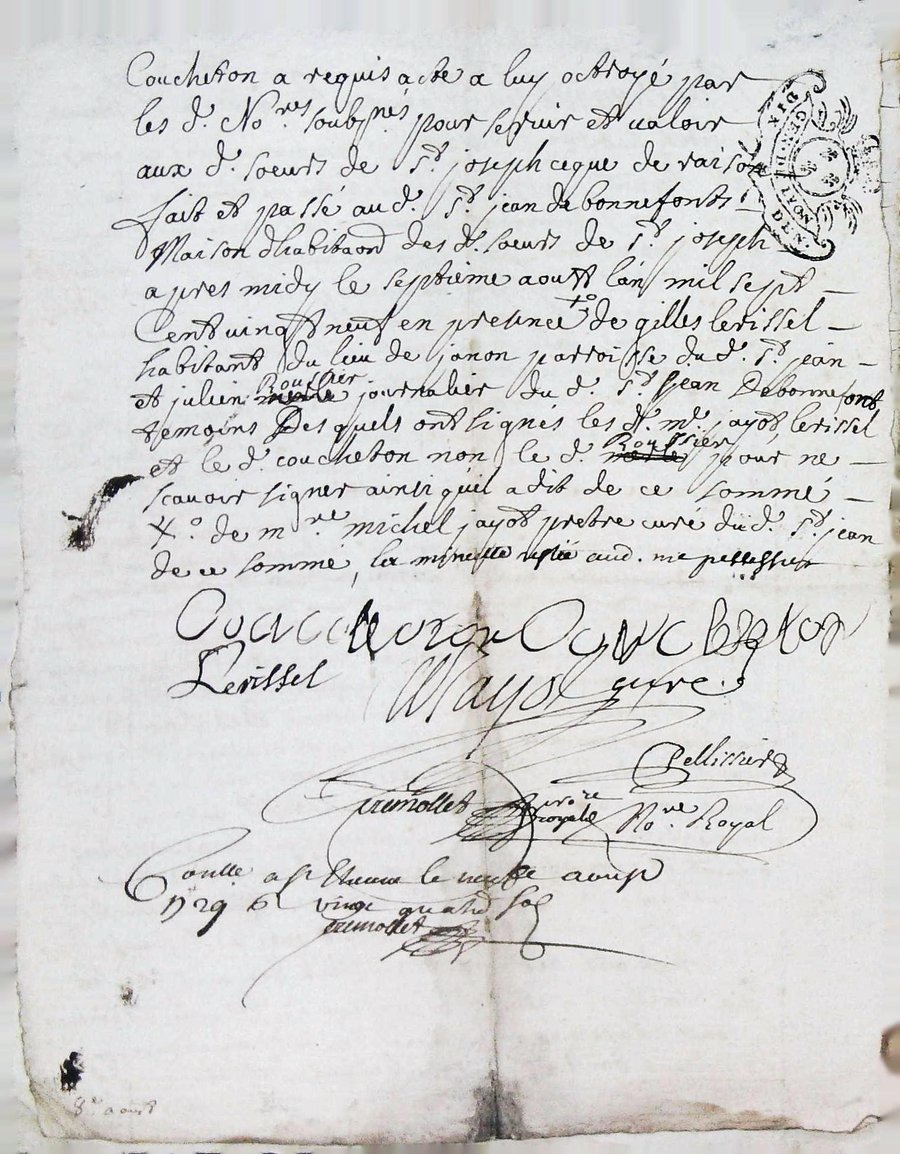 Coucheton a requis acte a luy octroyé par
les d. No.res soubs.nés pour servir et valoir
aux d. soeurs de S.t joseph ce que de raison
fait et passé aud. S.t jean de bonnefonts
Maison d'habitaon des d. soeurs de S.t joseph
apres midy le septième aoust lan mil sept
Cent vingt neuf en presence +o de gilles lerissel
habitant du lieu de janon parroisse du d. S.t jean
et julien Roussier journalier du d. S.t jean De bonnefont
temoins Desquels ont signés les d. m.e jayot lerissel
et le d. coucheton non le d. Roussier pour ne
scavoir signer ainsi quil a dit de ce sommé
+o de m.re michel jayot prêtre curé dud. S.t jean
de ce sommé, la minutte restée aud. me pellissier
Lerissel
M Jayot curé
Pellissier
Gremollet no.re royal
No.re Royal
Con.llé a S.t Etienne le neufe aoust
1729 vingt quatre sols
Gremollet
8.e aoust
DIX
GEN. D.
LYON
DEN.